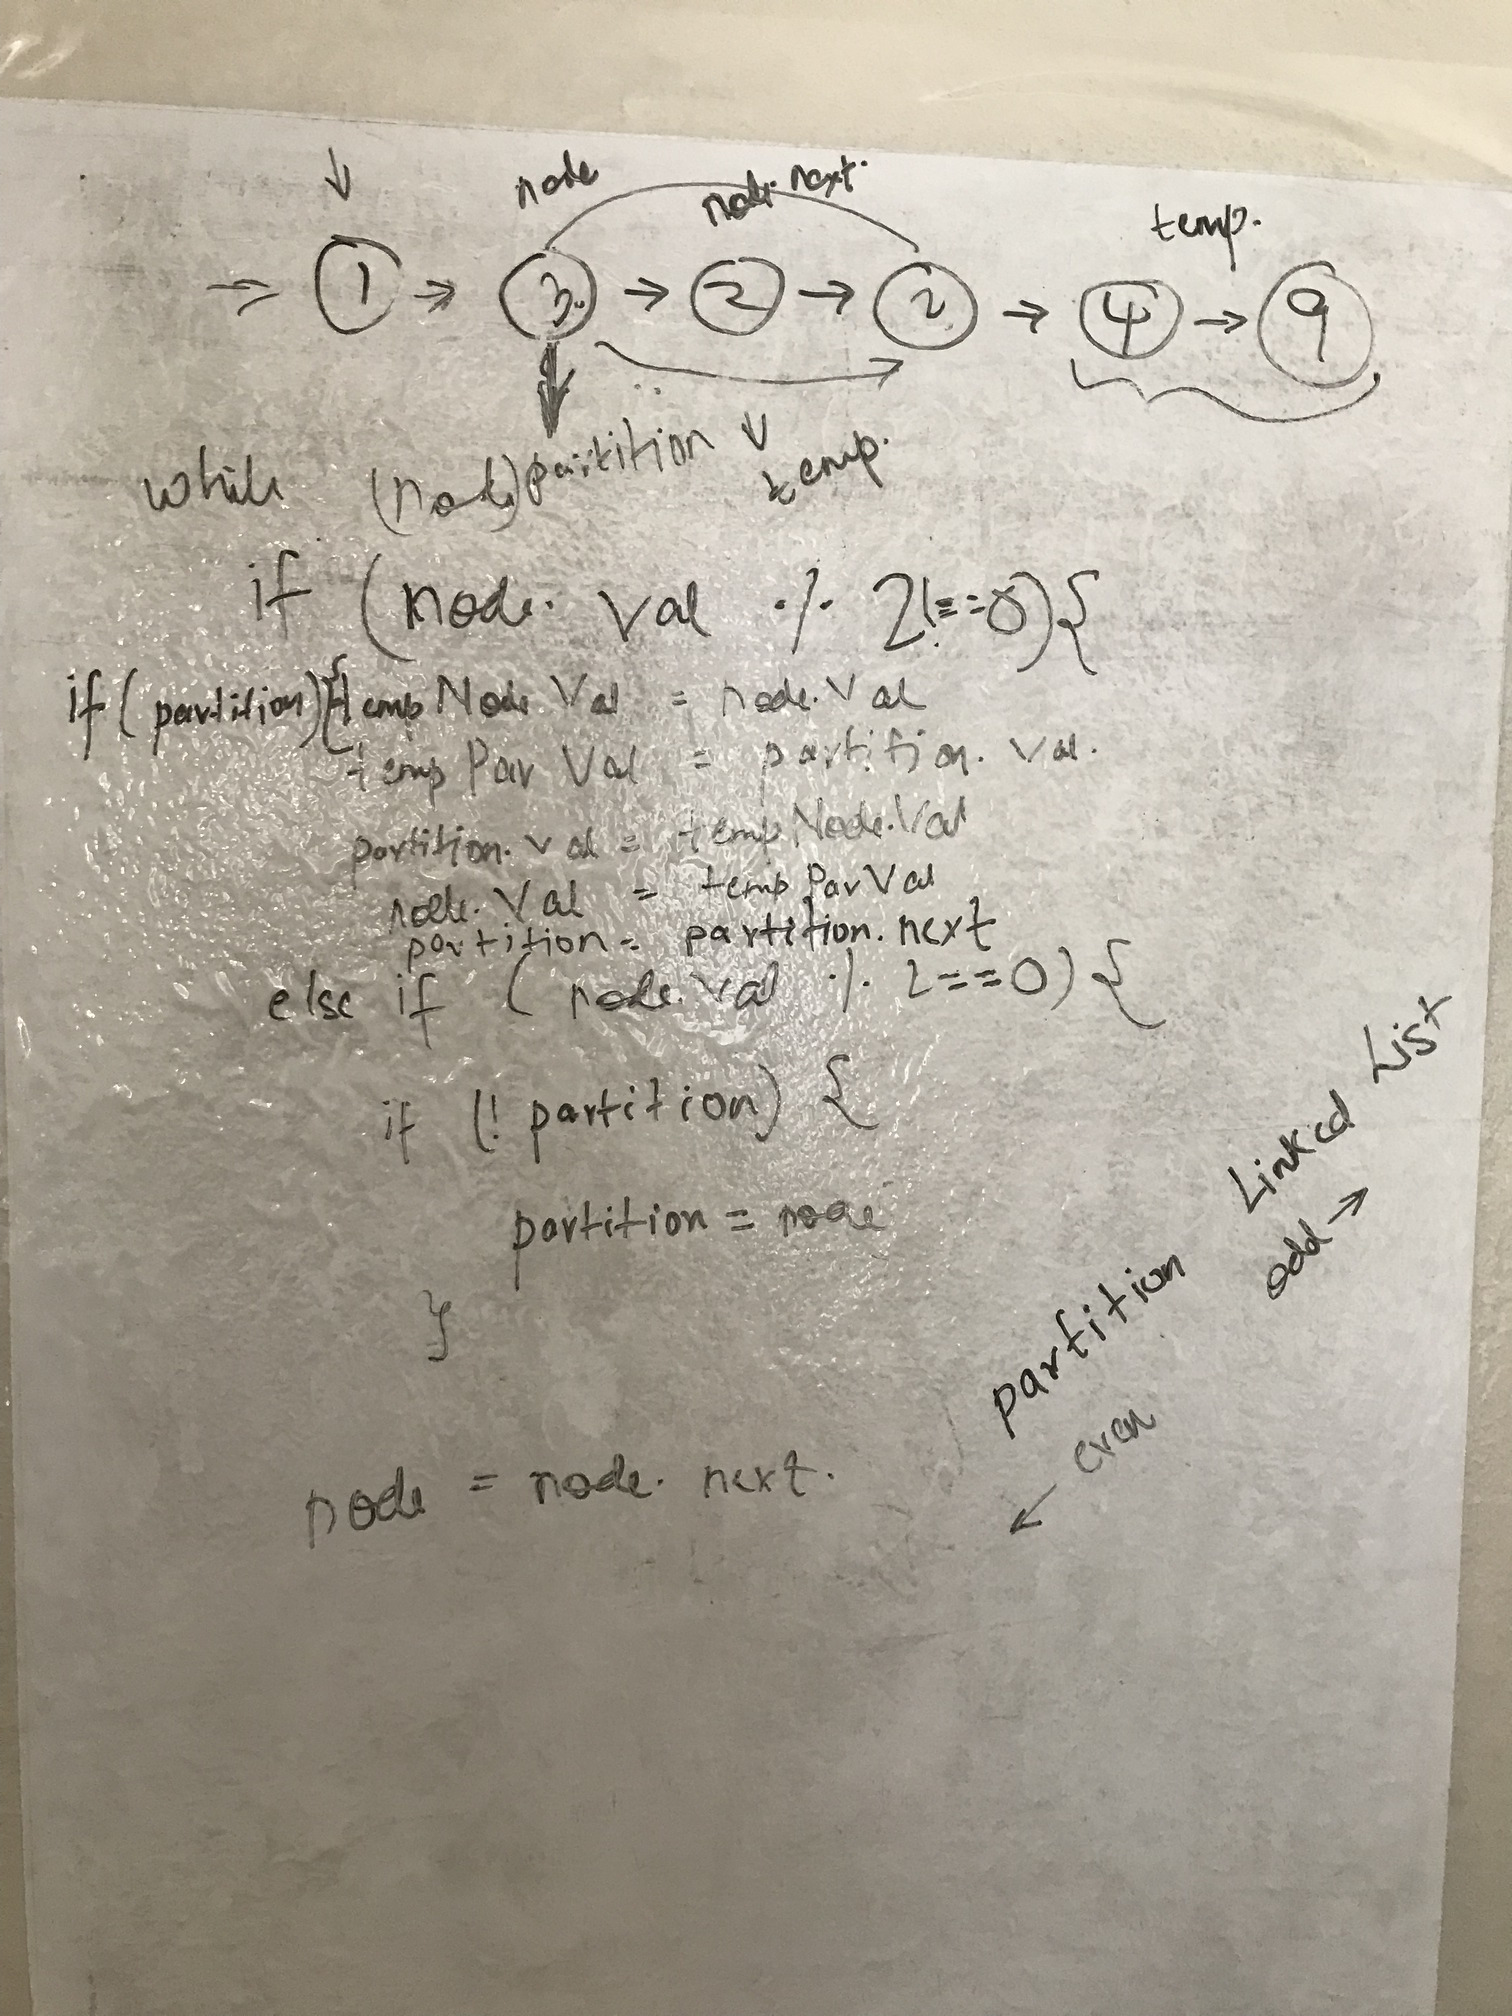 node node.next. temp.
→ 1 → 3. → 2 → 2 → 4 → 9
while (node) partition temp.
if (node. val % 2!==0){
if (partition){ tempNode Val = node.Val
temp Par Val = partition. val.
partition. val = tempNode.Val
node. Val = temp Par Val
partition = partition. next
else if ( node.val % 2==0) {
if (! partition) {
partition = node
}
node = node. next.
partition Linked List
← even odd →